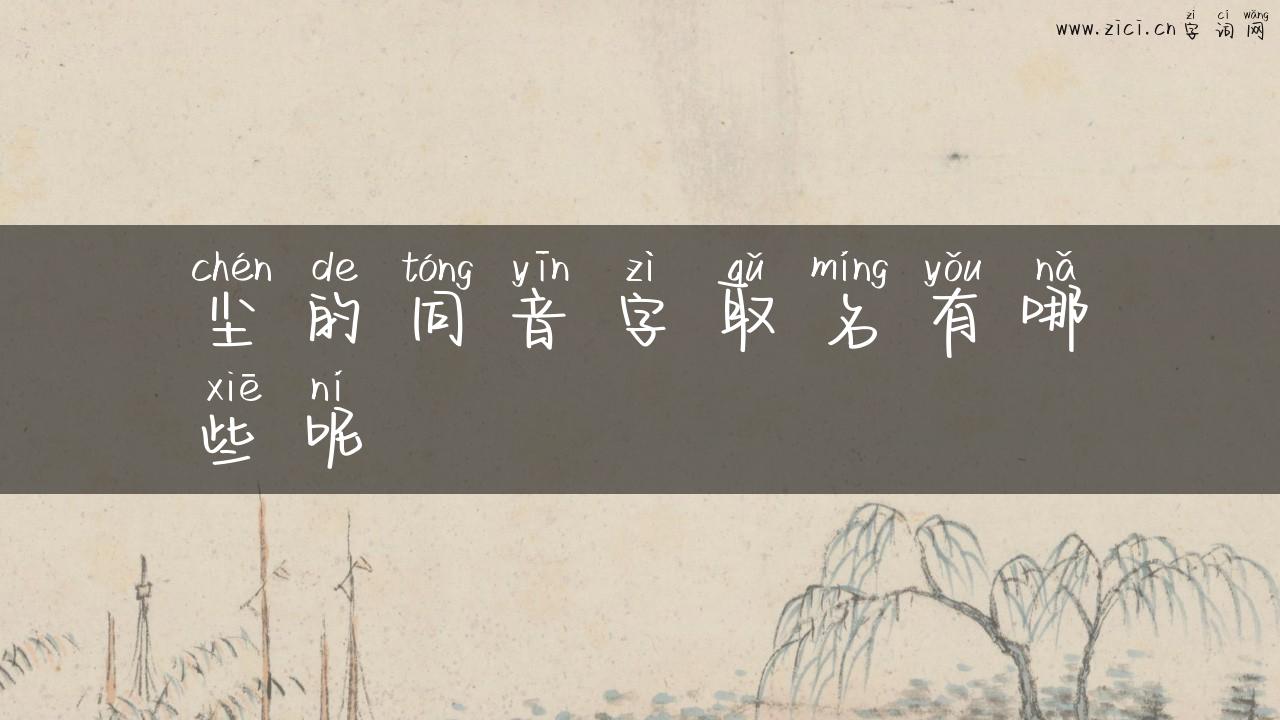 zì cí wǎng
www.zici.cn 字词网
chén de tóng yīn zì qǔ míng yǒu nǎ
尘的同音字取名有哪
xiē ní
些呢